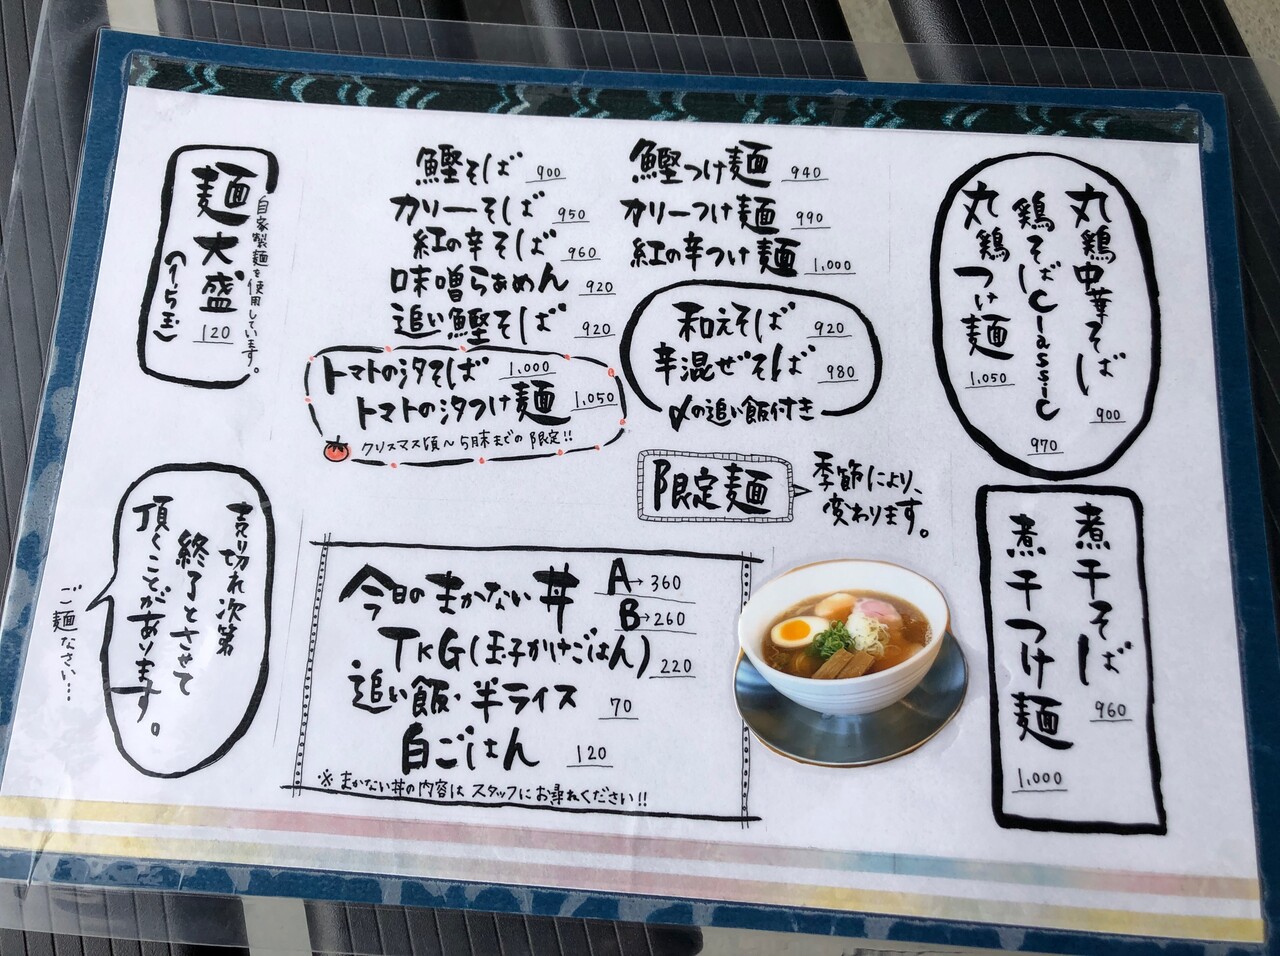 丸鶏中華そば
900
鶏そばClassic
970
丸鶏つけ麺
1,050
煮干そば
960
煮干つけ麺
1,000
鰹つけ麺 940
カリーつけ麺 990
紅の辛つけ麺 1,000
和えそば 920
辛混ぜそば 980
〆の追い飯付き
限定麺
季節により、
変わります。
鰹そば 900
カリーそば 950
紅の辛そば 960
味噌らぁめん 920
追い鰹そば 920
トマトの汐そば 1,000
トマトの汐つけ麺 1,050
クリスマス頃〜5月末までの限定!!
今日のまかない丼 A→360
B→260
TKG(玉子かけごはん) 220
追い飯・半ライス 70
白ごはん 120
※まかない丼の内容はスタッフにお尋ねください!!
自家製麺を使用しています。
麺大盛
(1.5玉)
120
売り切れ次第
終了とさせて
頂くことがあります。
ご麺なさい…